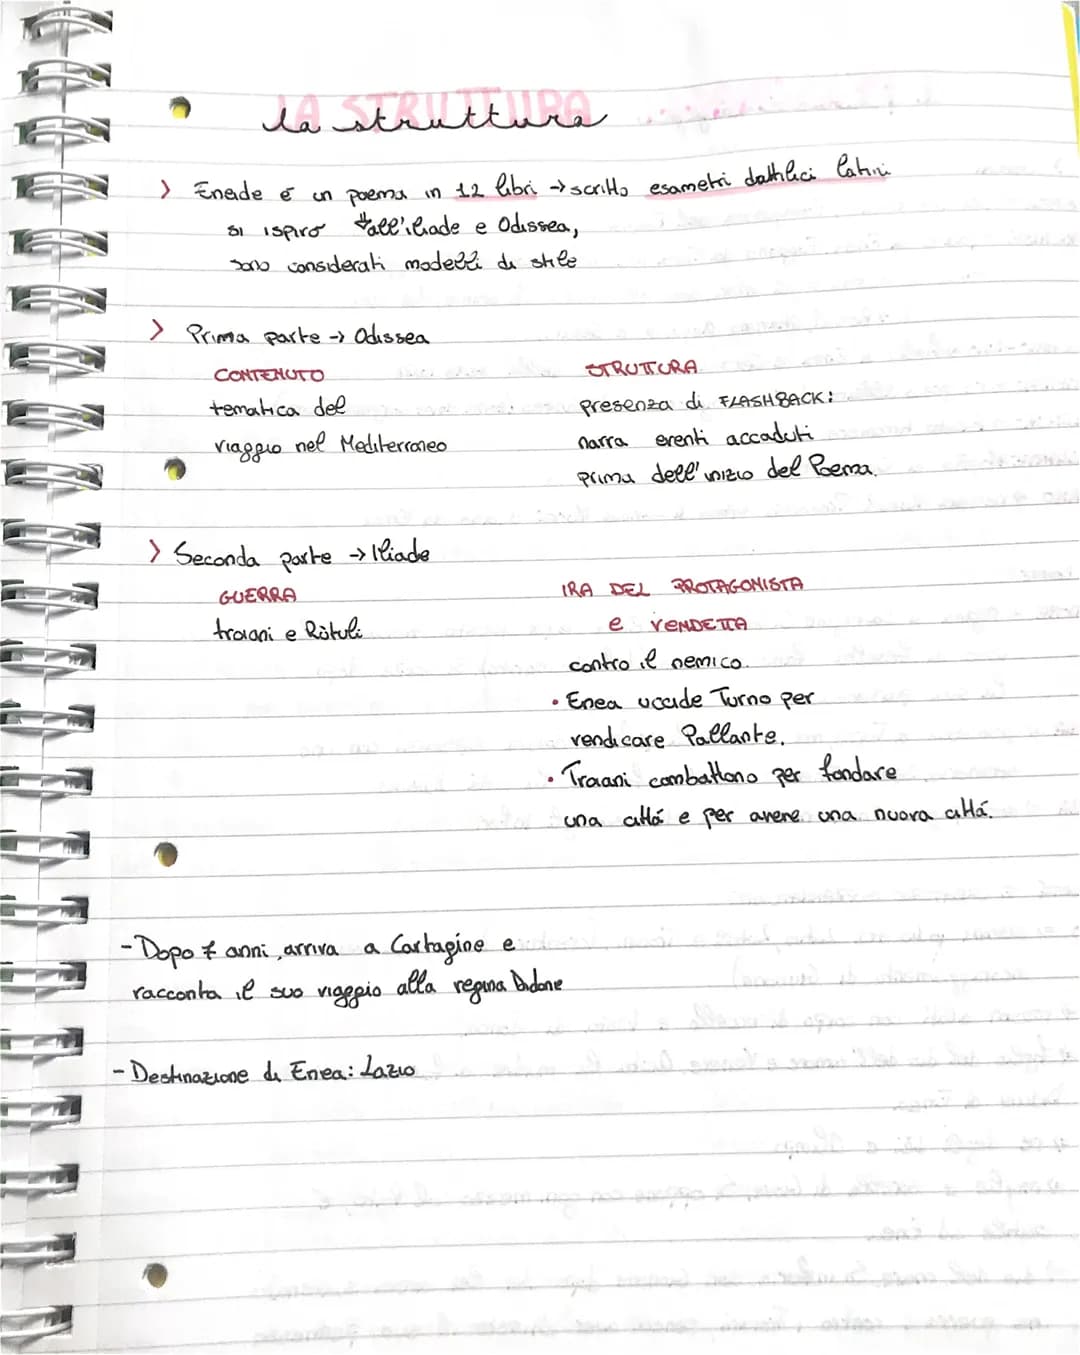 LA STRUTTURA
la struttura
> Eneide é un poema in 12 libri → scritto esametri dattilici latini
si ispirò dall'iliade e Odissea,
sono considerati modelli di stile
> Prima parte → Odissea
CONTENUTO
tematica del
viaggio nel Mediterraneo
STRUTTURA
presenza di FLASHBACK:
narra eventi accaduti
prima dell'inizio del Poema.
> Seconda parte → Iliade
GUERRA
troiani e Rùtuli
IRA DEL PROTAGONISTA
e VENDETTA
contro il nemico.
• Enea uccide Turno per
vendicare Pallante.
• Troiani combattono per fondare
una città e per avere una nuova città.
- Dopo 7 anni, arriva a Cartagine e
racconta il suo viaggio alla regina Didone
- Destinazione di Enea: Lazio